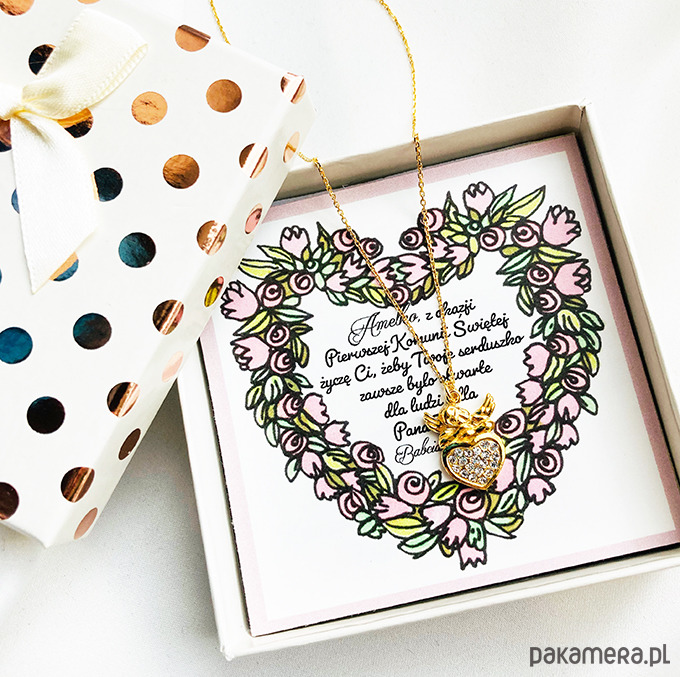 Amelko, z okazji
Pierwszej Komunii Świętej
życzę Ci, żeby Twoje serduszko
zawsze było otwarte
dla ludzi dla
Pana
Babcia
pakamera.pl